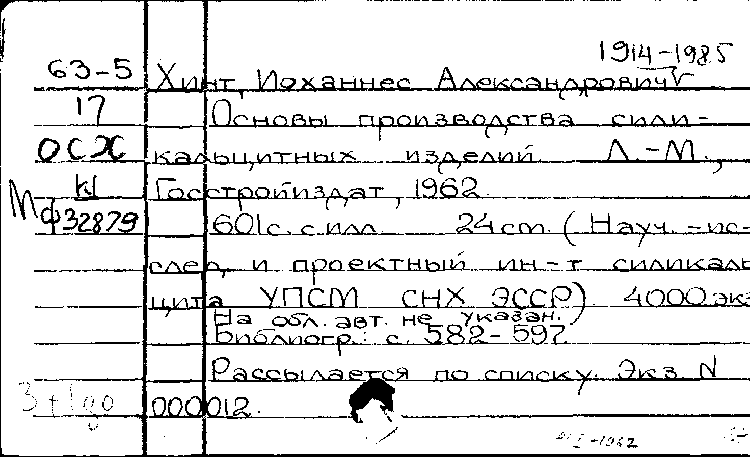 1914-1985
63-5 Хинт, Иоханнес Александрович
17 Основы производства сили-
ОСХ кальцитных изделий. Л.-М.,
Госстройиздат, 1962.
Мф32879 601с. с илл. 24cm. (Науч.-ис-
след. и проектный ин-т силикаль
цита УПСМ СНХ ЭССР). 4000 экз
На обл. авт. не указан.
Библиогр.: с. 582-597
Рассылается по списку. Экз. N
000012.